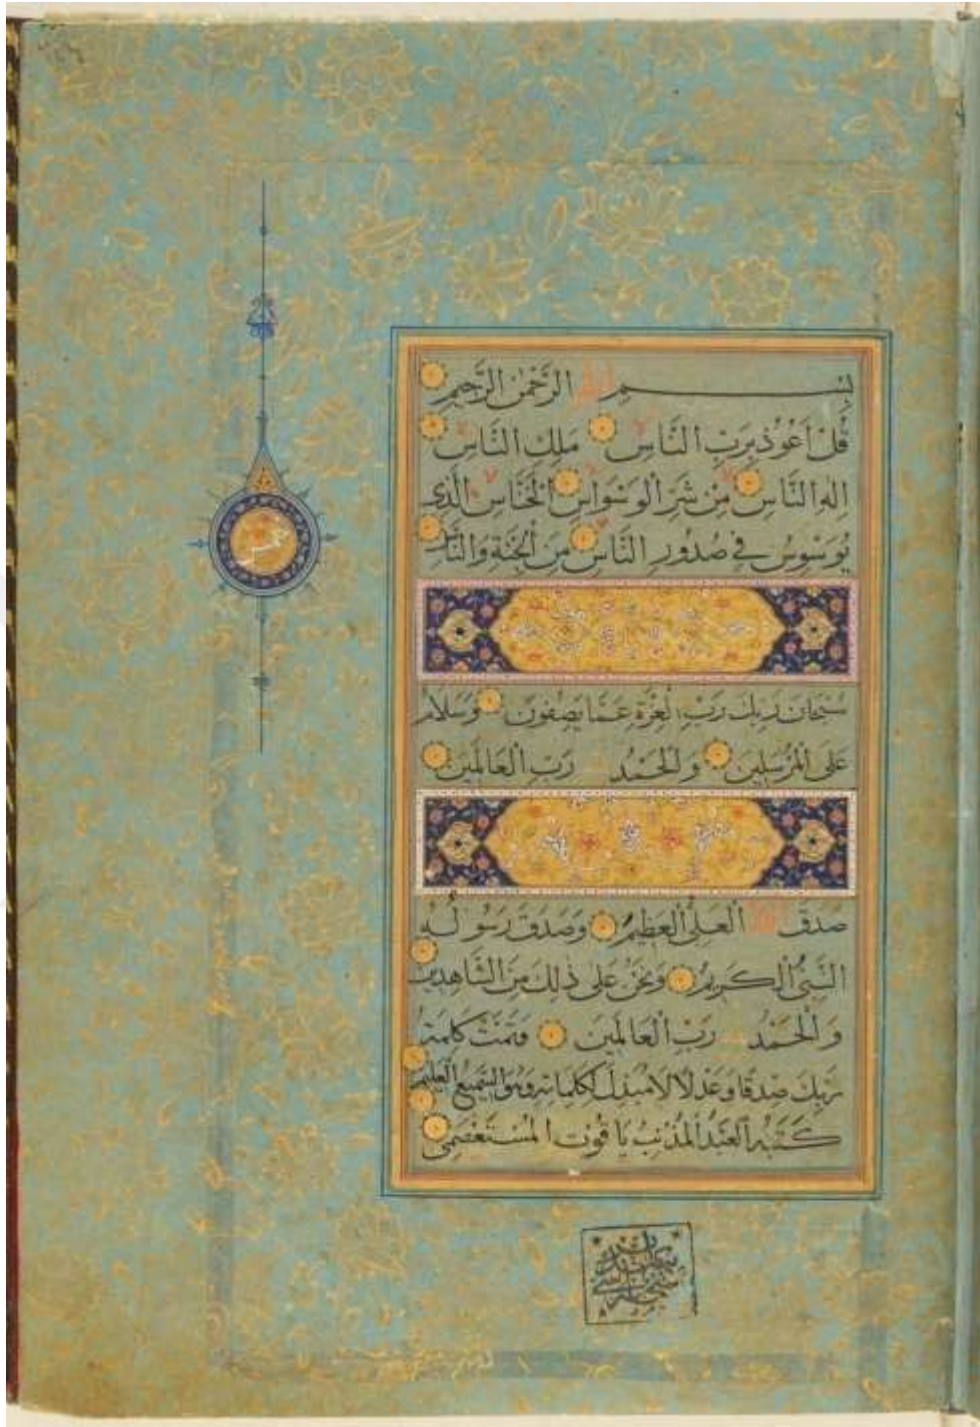 بِسْمِ اللّٰهِ الرَّحْمٰنِ الرَّحِيمِ
قُلْ اَعُوْذُ بِرَبِّ النَّاسِ مَلِكِ النَّاسِ
اِلٰهِ النَّاسِ مِنْ شَرِّ الْوَسْوَاسِ الْخَنَّاسِ الَّذِى
يُوَسْوِسُ فِى صُدُورِ النَّاسِ مِنَ الْجِنَّةِ وَالنَّاسِ
سُبْحَانَ رَبِّكَ رَبِّ الْعِزَّةِ عَمَّا يَصِفُونَ وَسَلَامٌ
عَلَى الْمُرْسَلِينَ وَالْحَمْدُ لله رَبِّ الْعَالَمِينَ
صَدَقَ اللّٰهُ الْعَلِىُّ الْعَظِيمُ وَصَدَقَ رَسُولُهُ
النَّبِىُّ الْكَرِيمُ وَنَحْنُ عَلَى ذٰلِكَ مِنَ الشَّاهِدِينَ
وَالْحَمْدُ لله رَبِّ الْعَالَمِينَ وَتَمَّتْ كَلِمَةُ
رَبِّكَ صِدْقًا وَعَدْلًا لَا مُبَدِّلَ لِكَلِمَاتِهِ وَهُوَ السَّمِيعُ الْعَلِيمُ
كَتَبَهُ الْعَبْدُ الْمُذْنِبُ يَاقُوتُ الْمُسْتَعْصِمِى